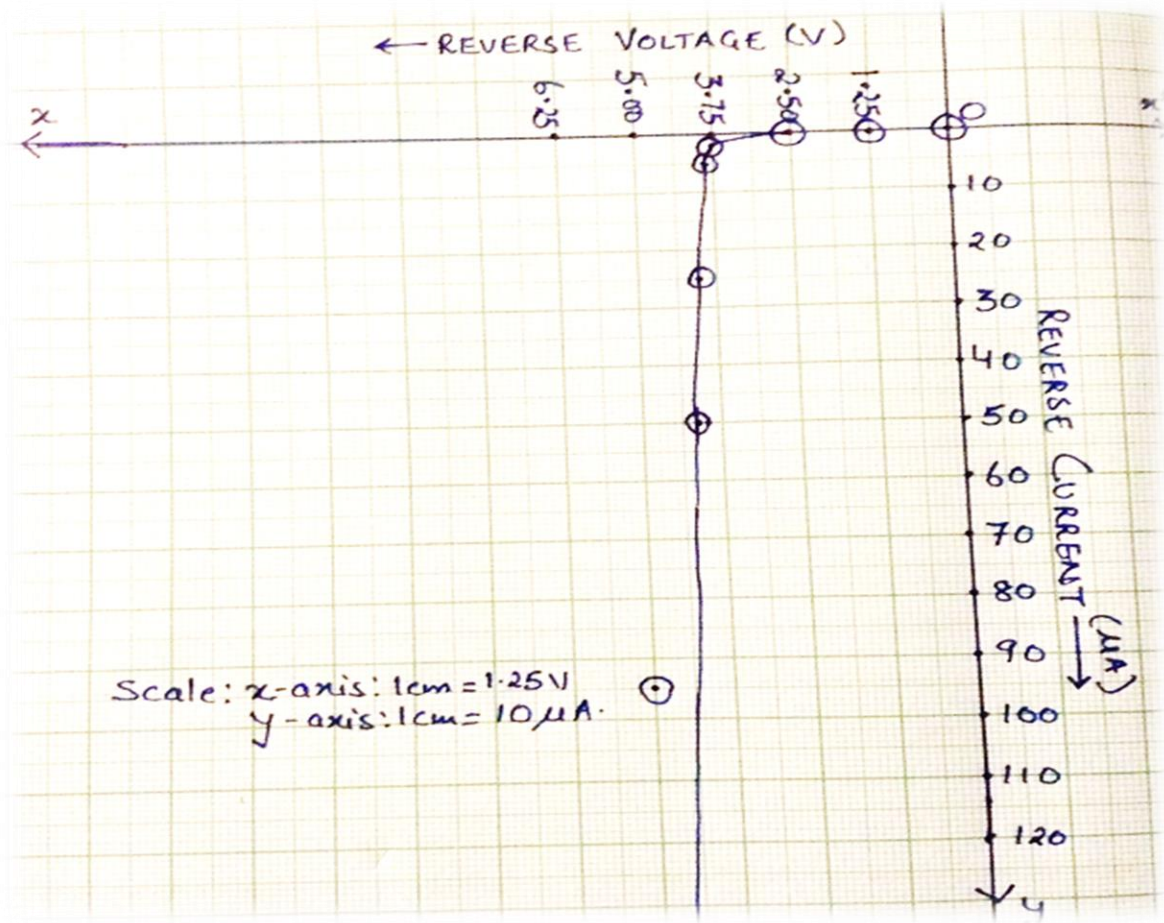 ← REVERSE VOLTAGE (V)
x
6.25
5.00
3.75
2.50
1.25
0
10
20
30
40
50
60
70
80
90
100
110
120
REVERSE CURRENT → (µA)
Scale: x-axis: 1cm = 1.25V
y-axis: 1cm = 10µA.
y